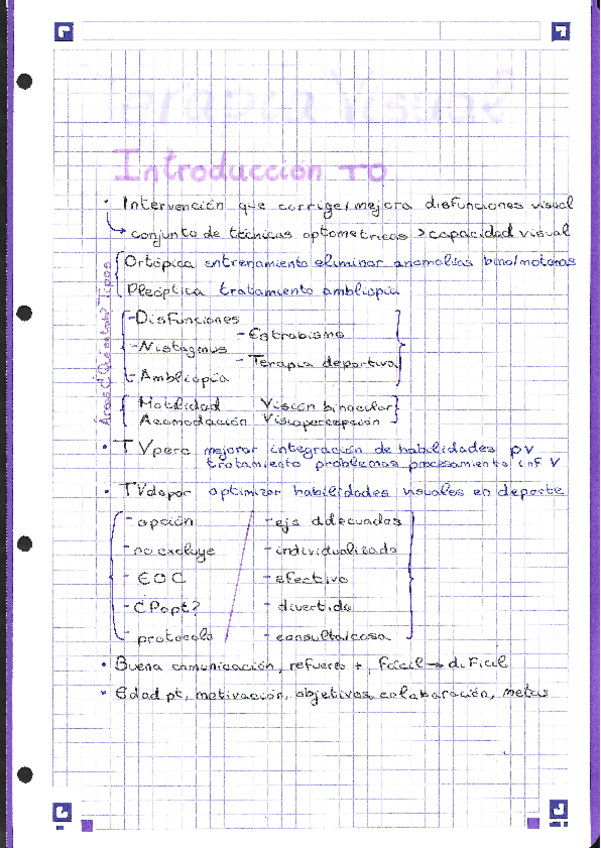 Terapia Visual
Introducción TO
• Intervención que corrige/mejora disfunciones visual
↳ conjunto de técnicas optometricas > capacidad visual
Tipos
Ortóptica entrenamiento eliminar anomalías bino/motoras
Pleóptica tratamiento ambliopia
-Disfunciones
-Estrabismo
-Nistagmus
-Terapia deportiva
-Ambliopía
Áreas
Motilidad Visión binocular
Acomodación Visiopercepción
• TVperc mejorar integración de habilidades pv
tratamiento problemas procesamiento inf V
• TVdepor optimizar habilidades visuales en deporte
-opción -eje adecuados
-no excluye -individualizado
-EOC -efectivo
-CPopt? -divertido
-protocolo -consulta/casa
• Buena comunicación, refuerzo +, fácil → difícil
• Edad pt, motivación, objetivos, colaboración, metas